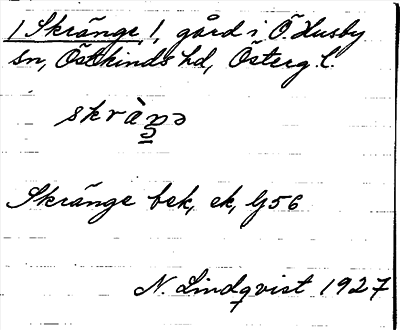 /Skränge/, gård i Ö. Husby
sn, Östkinds hd, Österg. l.
skràŋ̳ə
Skränge bek, ek, G56
N. Lindqvist 1927